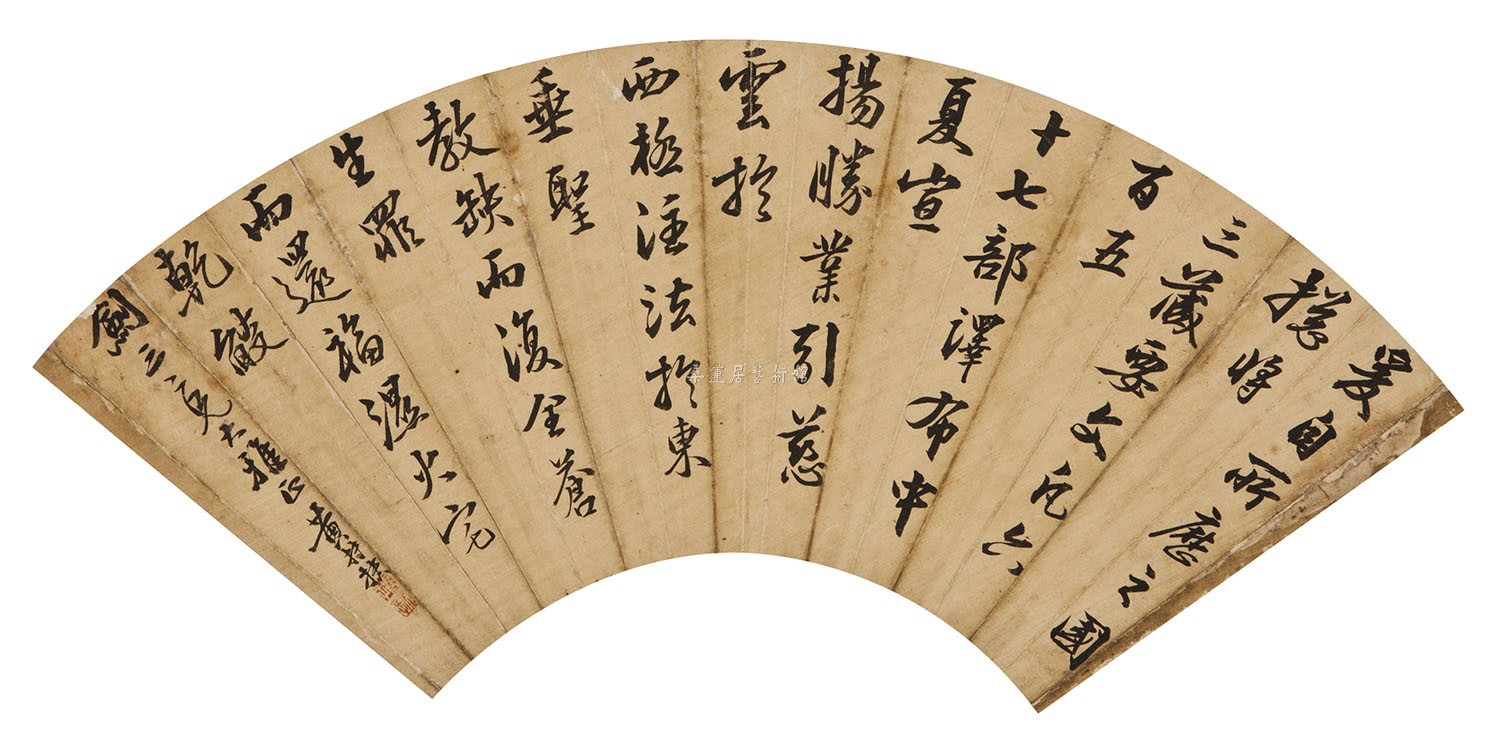 爰自所歷之國
揔將
三藏要文凡六
百五
十七部譯布中
夏宣
揚勝業引慈
雲於
西極注法於東
垂聖
教缺而復全蒼
生罪
而還福濕火宅
乾燄
劍三兄大雅正 黃
居藝術館